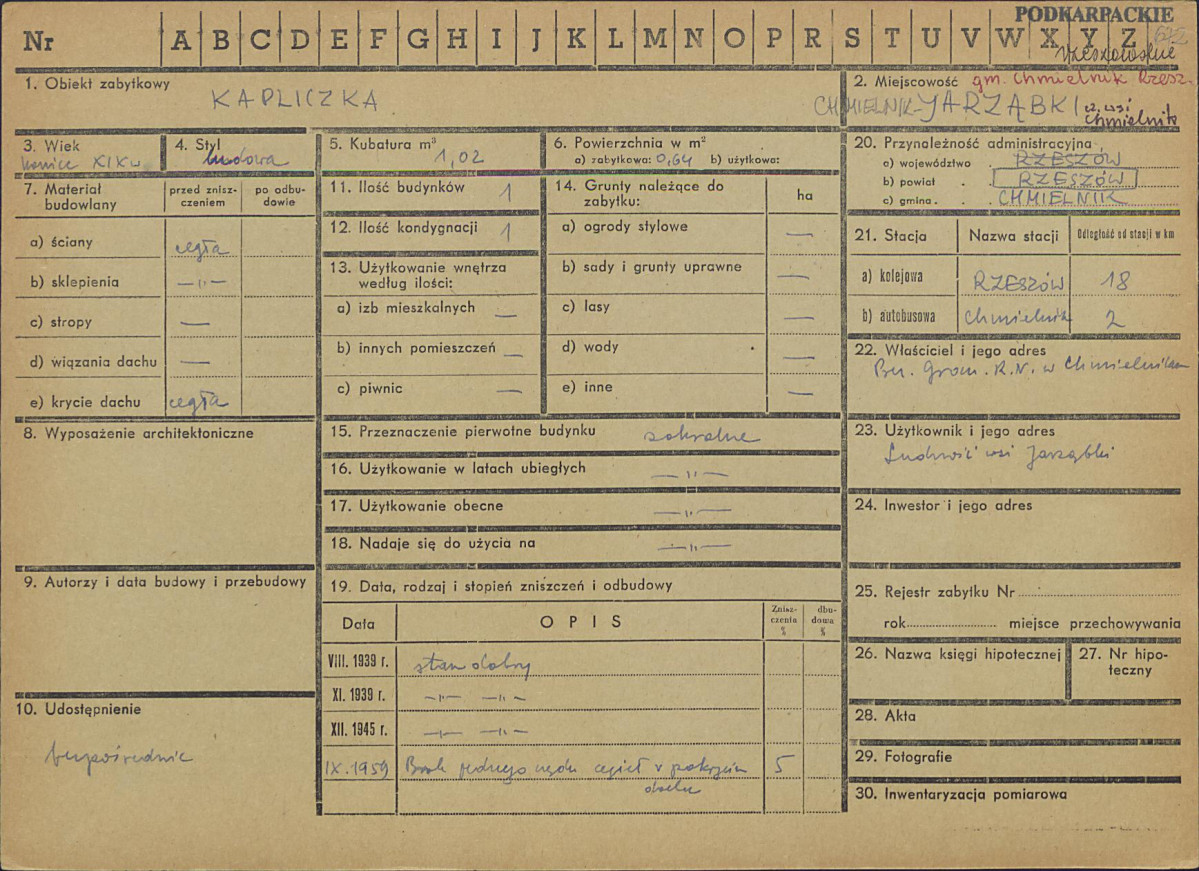 PODKARPACKIE
Nr A B C D E F G H I J K L M N O P R S T U V W X Y Z
rzeszowskie
1. Obiekt zabytkowy
KAPLICZKA
2. Miejscowość gm. Chmielnik Rzesz.
CHMIELNIK-JARZĄBKI cz. wsi
Chmielnik
3. Wiek
koniec XIX w
4. Styl
ludowa
5. Kubatura m³
1,02
6. Powierzchnia w m²
a) zabytkowa: 0,64 b) użytkowa:
20. Przynależność administracyjna
a) województwo . RZESZÓW
b) powiat . . RZESZÓW
c) gmina . . CHMIELNIK
7. Materiał budowlany
przed znisz-
czeniem
po odbu-
dowie
a) ściany cegła
b) sklepienia —„—
c) stropy —
d) wiązania dachu —
e) krycie dachu cegła
8. Wyposażenie architektoniczne
9. Autorzy i data budowy i przebudowy
10. Udostępnienie
bezpośrednie
11. Ilość budynków 1
12. Ilość kondygnacji 1
13. Użytkowanie wnętrza
według ilości:
a) izb mieszkalnych —
b) innych pomieszczeń —
c) piwnic —
14. Grunty należące do
zabytku:
ha
a) ogrody stylowe —
b) sady i grunty uprawne —
c) lasy —
d) wody —
e) inne —
15. Przeznaczenie pierwotne budynku sakralne
16. Użytkowanie w latach ubiegłych —„—
17. Użytkowanie obecne —„—
18. Nadaje się do użycia na —„—
19. Data, rodzaj i stopień zniszczeń i odbudowy
Data OPIS
Znisz-
czenia
%
dbu-
dowa
%
VIII. 1939 r. stan dobry
XI. 1939 r. —„— —„—
XII. 1945 r. —„— —„—
IX. 1959 Brak jednego rzędu cegieł w pokryciu 5
dachu
21. Stacja Nazwa stacji Odległość od stacji w km
a) kolejowa RZESZÓW 18
b) autobusowa Chmielnik 2
22. Właściciel i jego adres
Grom. R.N. w Chmielniku
23. Użytkownik i jego adres
Ludność wsi Jarząbki
24. Inwestor i jego adres
25. Rejestr zabytku Nr
rok miejsce przechowywania
26. Nazwa księgi hipotecznej
27. Nr hipo-
teczny
28. Akta
29. Fotografie
30. Inwentaryzacja pomiarowa